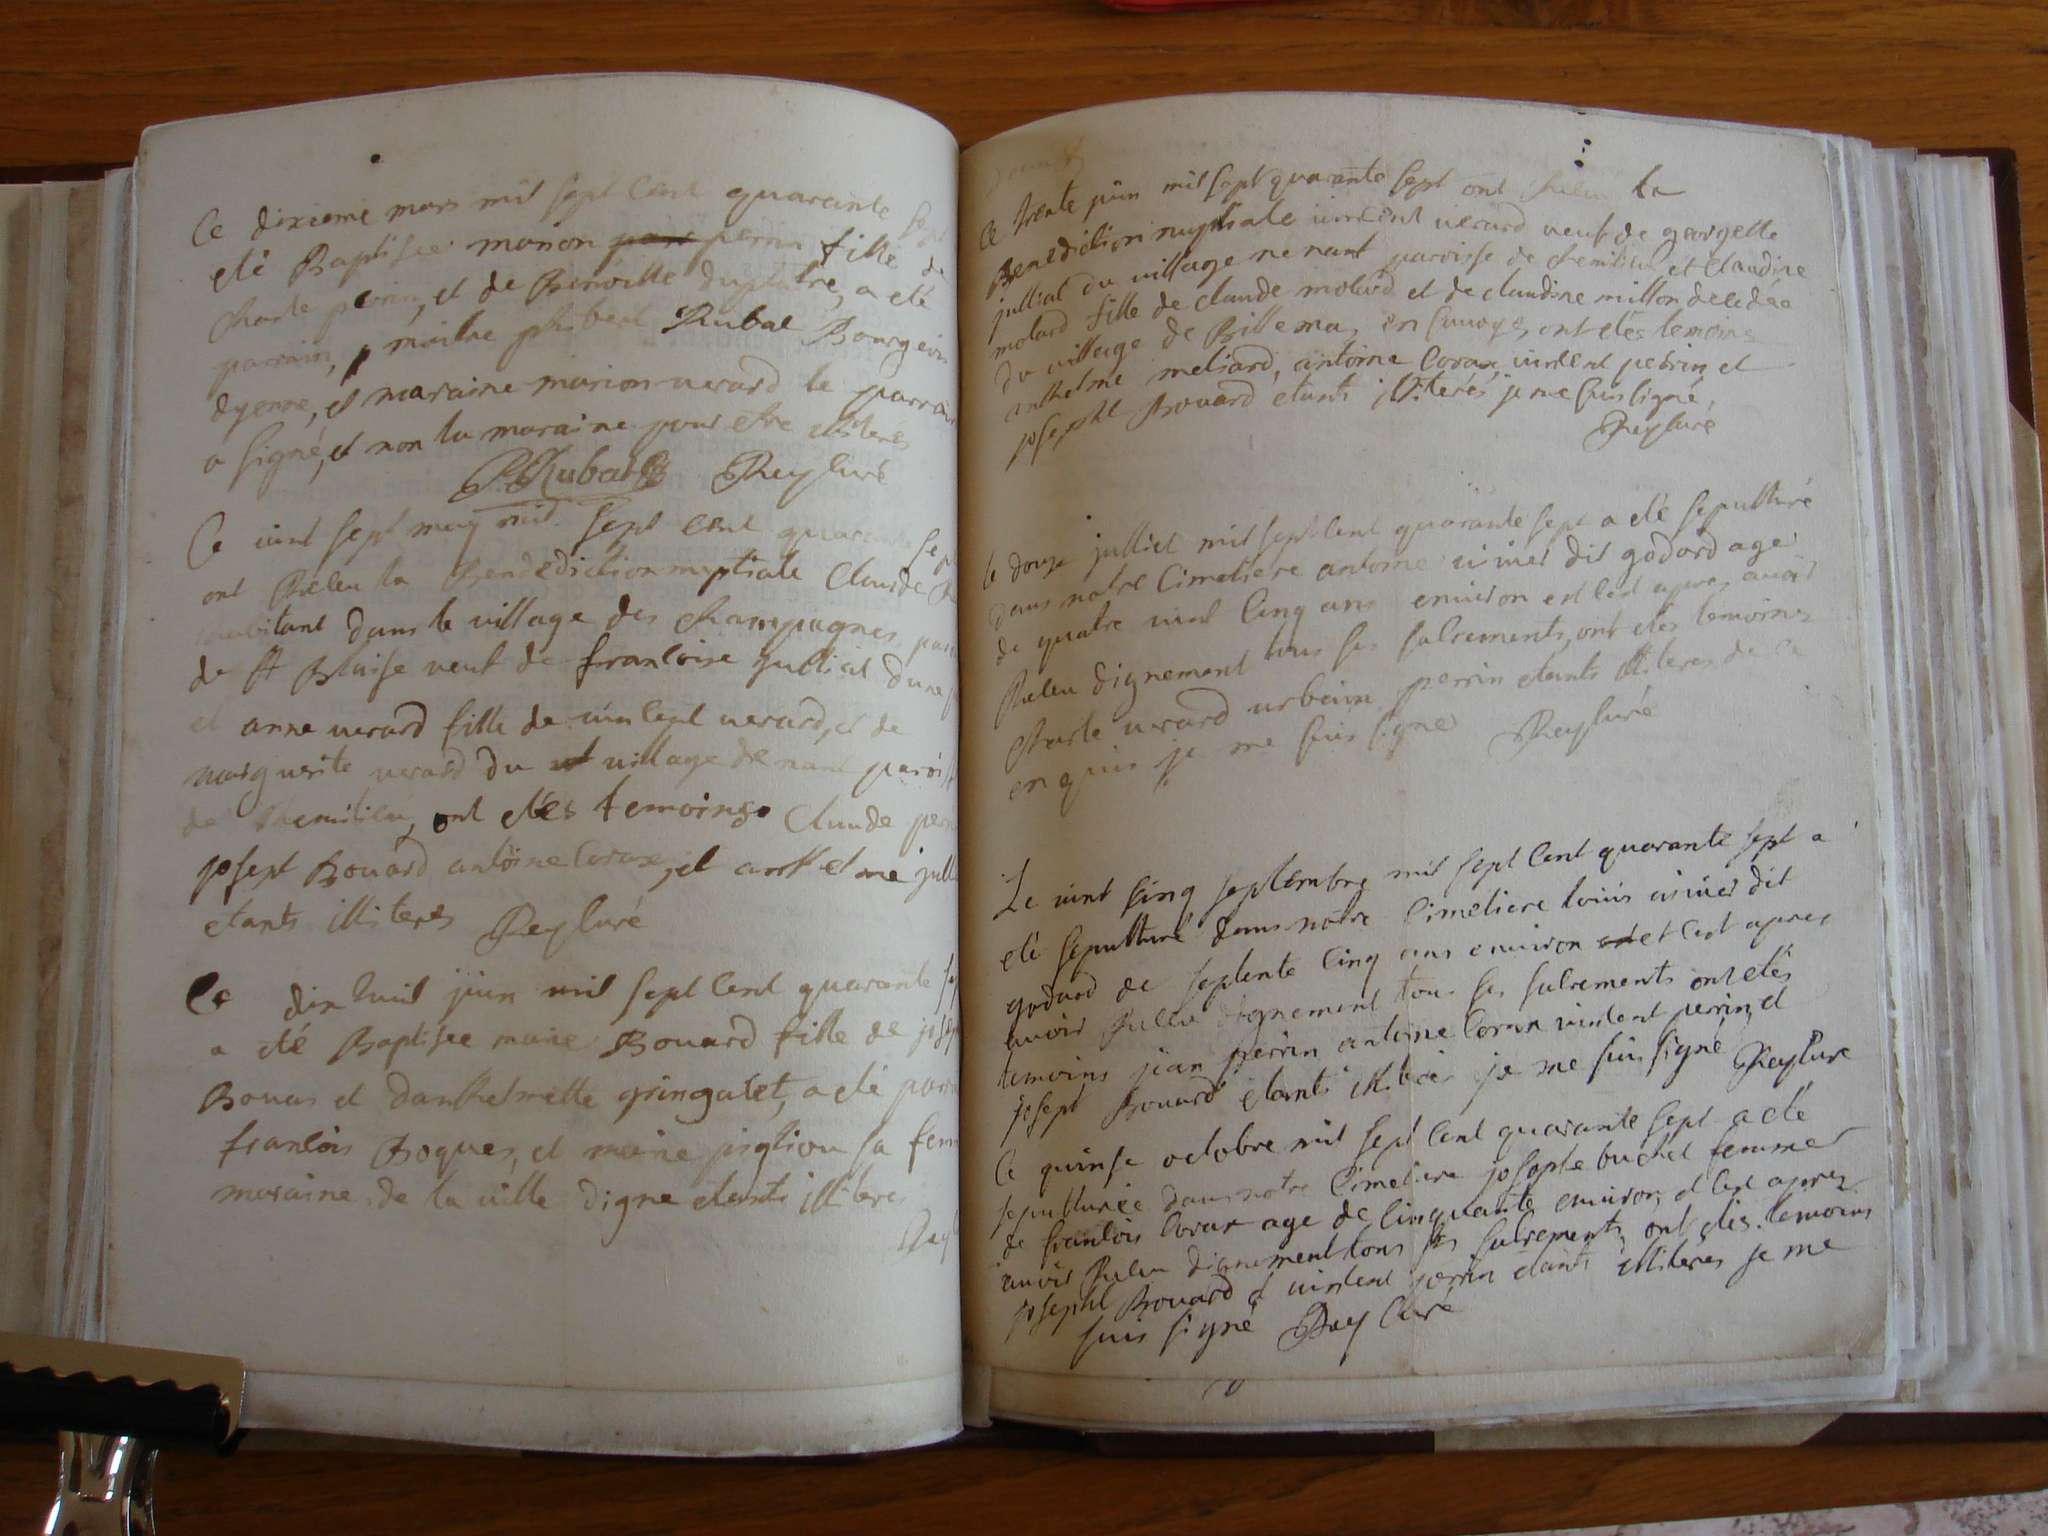 Ce dixieme mars mil sept cent quarante sept
eté Baptisee marion perrin fille de
charle perrin, et de Benoitte duplatre, a eté
parrain, maitre philbert Rubat Bourgeois
dyenne, et maraine marion uerard le parrain
a signé, et non la maraine pour etre illiteré
P. Rubat Rey Curé
Ce uint sept may mil sept cent quarante sept
ont Receu la Benediction nuptiale Claude
habitant dans le uillage des champagnes,
de st Blaise ueuf de francoise jullial
et anne uerard fille de uincent uerard, et de
marguerite uerard du uillage de nant paroisse
de Chemilieu, ont etés temoins Claude
josept Bouard antoine Corax, et anthelme
etants illiterés Rey Curé
Ce dix huit juin mil sept cent quarante
a eté Baptisee marie Bouard fille de
Bouar et danthelmette gringalet, a eté
francois Roques, et marie pigliou sa
maraine de la uille digne etants illiteres
Rey
Ce trente juin mil sept quarante sept ont Receu la
Benediction nuptiale uincent uerard ueuf de georgette
jullial du uillage ne nant paroisse de chemilieu et Claudine
molard fille de claude molard et de claudine millon decedée
du uillage de Billema, en Sauoye, ont etés temoins
anthelme meliard, antoine Corax, uincent perrin, et
josepht Bouard etants illiterés je me suis signé,
Rey Curé
le douze julliet mil sept cent quarante sept a eté sepulturé
dans notre Cimetiere antoine uiuier dit godard agé
de quatre uint cinq ans enuiron et cest apres auoir
Receu dignement tous ses sacrements, ont etés temoins
charle uerard urbain perrin etants illiteres de ce
enquis je me suis signé Rey Curé
Le uint cinq septembre mil sept cent quarante sept a
eté sepulturé dans notre Cimetiere louis uiuier dit
godard de septente cinq ans enuiron et cest apres
auoir Receu dignement tous ses sacrements ont etés
temoins jean perrin antoine Corax uincent perrin, et
josept Bouard etants illiterés je me suis signé Rey Curé
Ce quinse octobre mil sept cent quarante sept a eté
sepulturée dans notre Cimetiere josephte buchet femme
de francois Corax age de cinquante enuiron, et cest apres
auoir Receu dignement tous ses sacrements, ont etés temoins
josepht Bouard et uincent perrin etants illiteres je me
suis signé Rey Curé